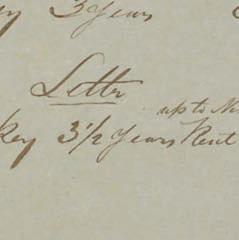 3 Years
Letter
up to
Key 3 1/2 Years Rent